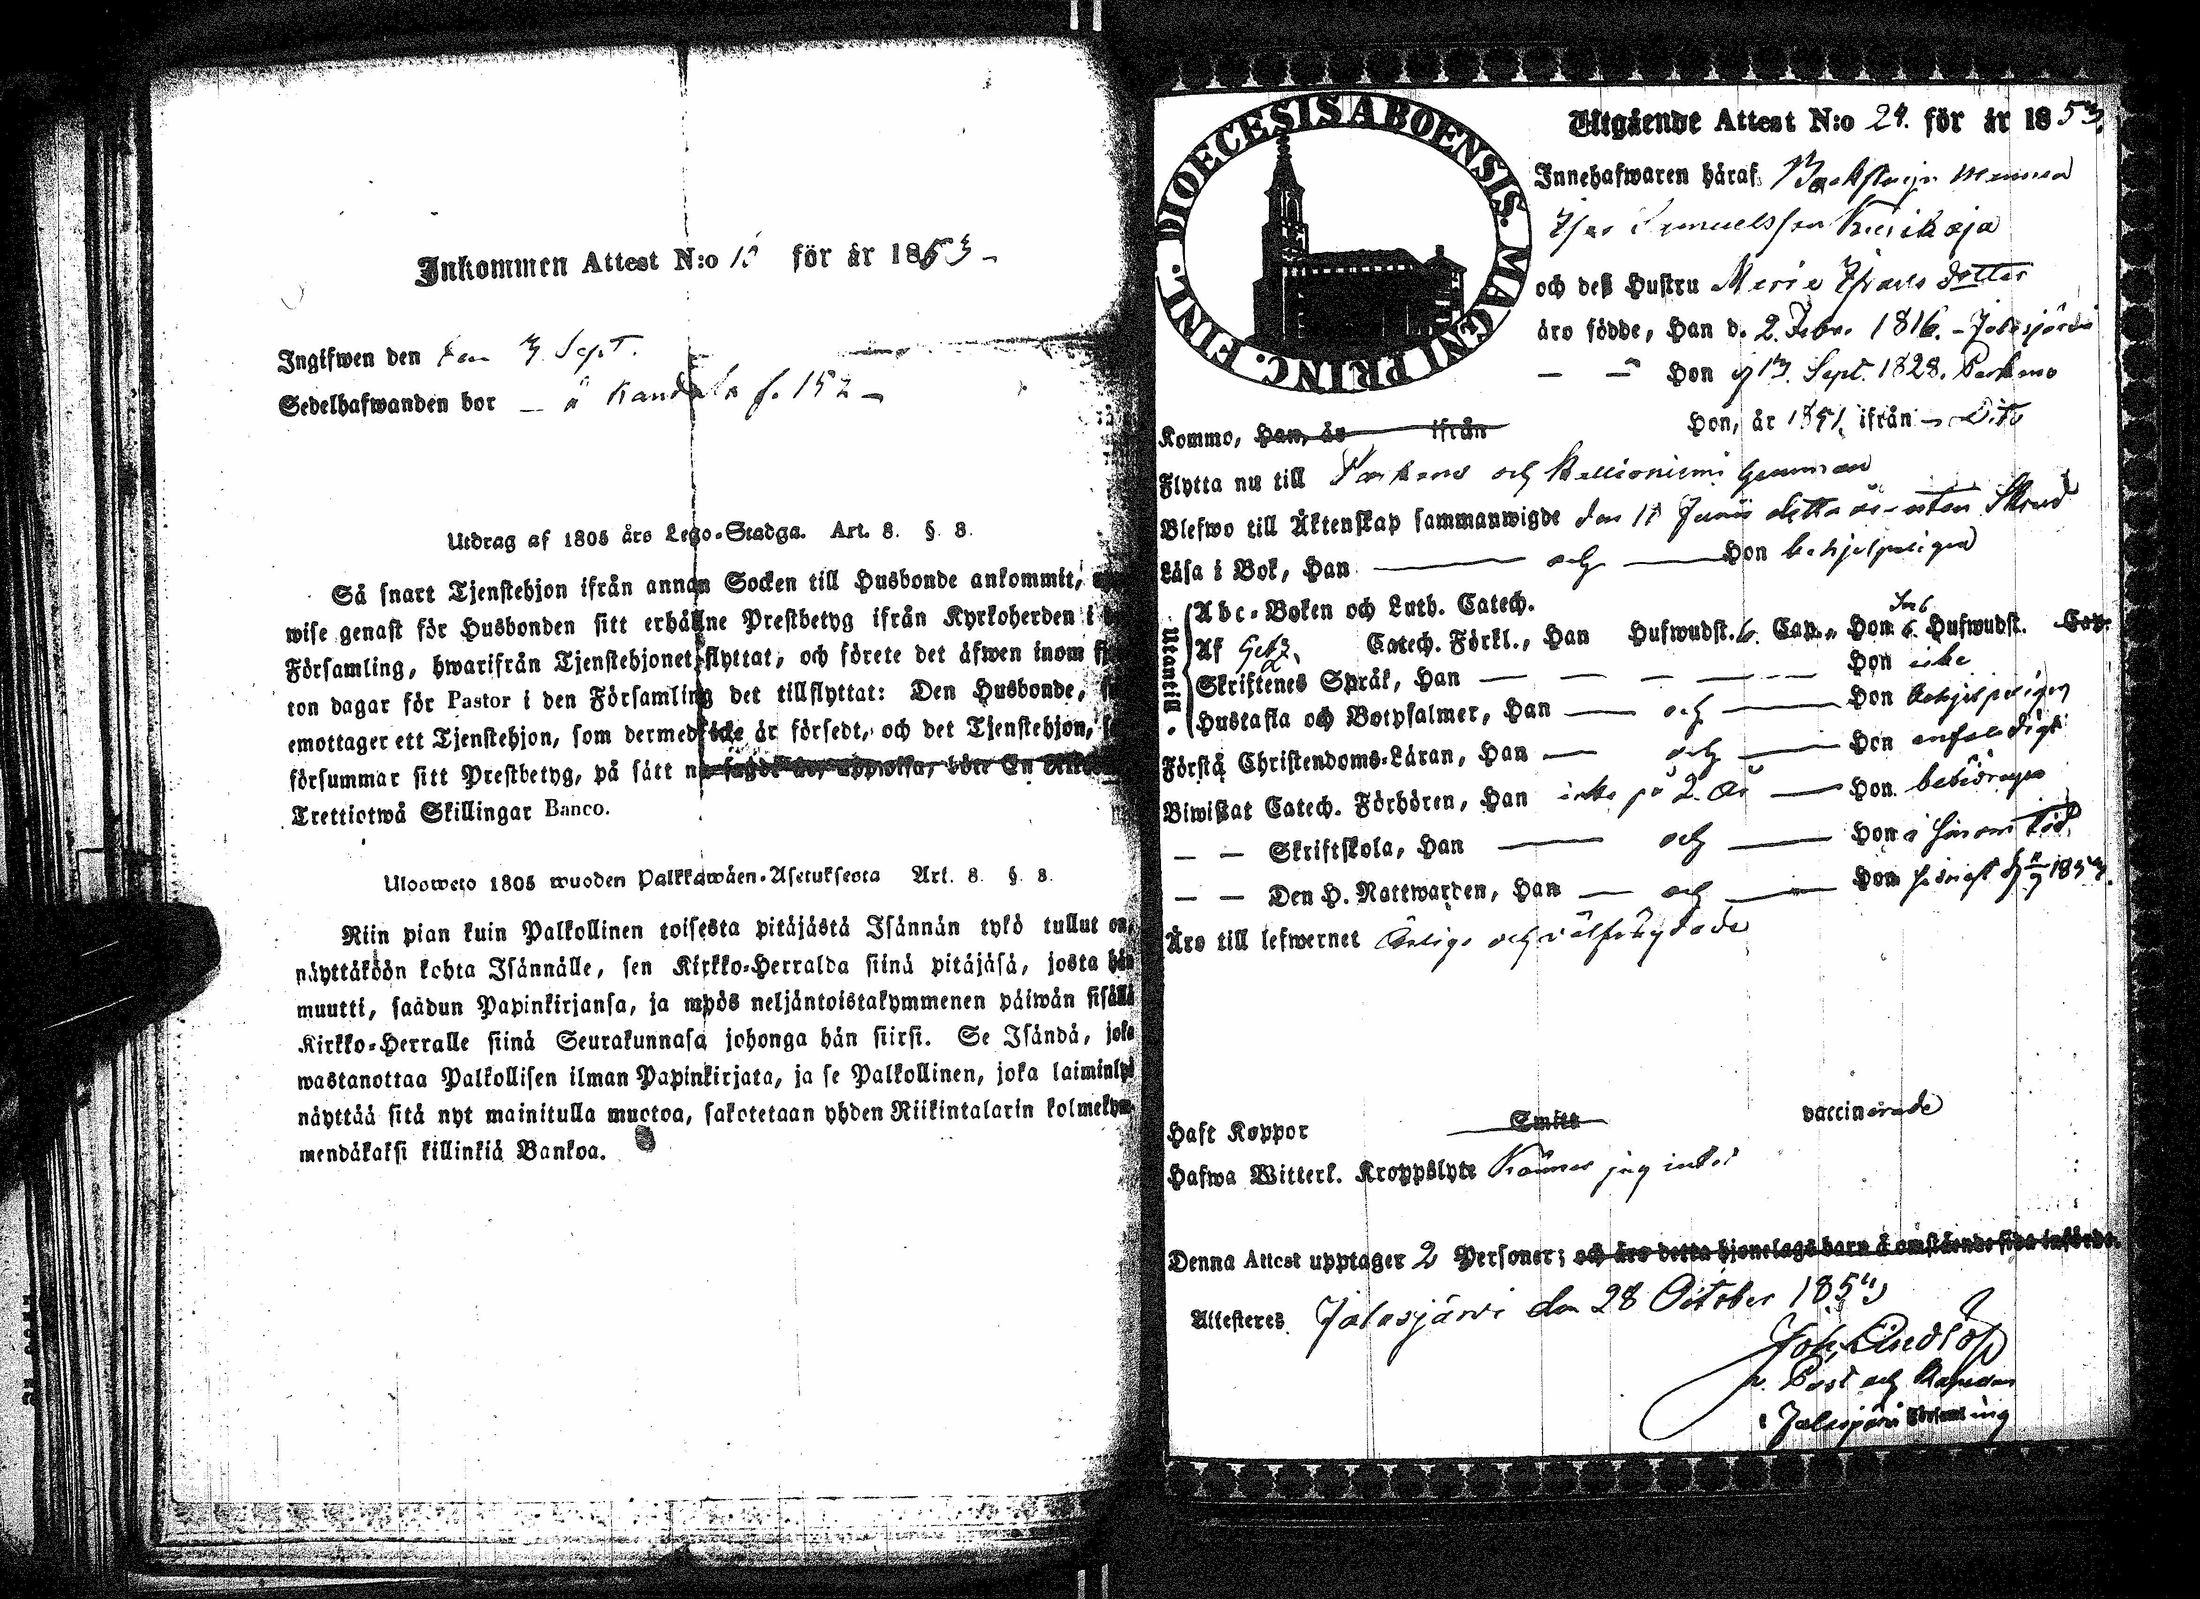 Inkommen Attest N:o 1 för år 1853 -
Ingifwen den den 3 Sept.
Sedelhafwanden bor - å Kandola f. 152 -
Utdrag af 1805 års Lego-Stadga. Art. 8. §. 8.
Så snart Tjenstehjon ifrån annan Socken till Husbonde ankommit,
wise genast för Husbonden sitt erhållne Prestbetyg ifrån Kyrkoherden i
Församling, hwarifrån Tjenstehjonet flyttat, och förete det äfwen inom
ton dagar för Pastor i den Församling det tillflyttat: Den Husbonde,
emottager ett Tjenstehjon, som dermed icke är försedt, och det Tjenstehjon,
försummar sitt Prestbetyg, på sätt nu sagdt är, uppwisa, böte En
Trettiotwå Skillingar Banco.
Ulosweto 1805 wuoden Palkkawäen-Asetuksesta Art. 8. §. 8.
Niin pian kuin Palkollinen toisesta pitäjästä Isännän tykö tullut on,
näyttäköön kohta Isännälle, sen Kirkko-Herralda siinä pitäjäsä, josta hän
muutti, saadun Papinkirjansa, ja myös neljäntoistakymmenen päiwän sisällä
Kirkko-Herralle siinä Seurakunnasa johonga hän siirsi. Se Isändä, joka
wastanottaa Palkollisen ilman Papinkirjata, ja se Palkollinen, joka laiminlyö
näyttää sitä nyt mainitulla muotoa, sakotetaan yhden Riikintalarin kolmekym-
mendäkaksi killinkiä Bankoa.
DIOECESIS ABOENSIS. MAGNI PRINC. FINL.
Utgående Attest N:o 24. för år 1853.
Innehafwaren häraf
Samuelsson
och deß Hustru Maria dotter
äro födde, Han d. 2. Febr. 1816. - Jalasjärvi
— — Hon d 13. Sept. 1828. Parkano
Kommo, Han, år ifrån Hon, år 1851, ifrån - Dito
Flytta nu till Parkano och
Blefwo till Äktenskap sammanwigde den 11 Junii detta år - utan
Läsa i Bok, Han — och — Hon behjelpeligen
Utantill.
Abc-Boken och Luth. Catech.
Af Catech. Förkl., Han Hufwudst. 6. Cap. Hon 6. Hufwudst. Cap.
Skriftenes Språk, Han — — — — — Hon icke
Hustafla och Botpsalmer, Han — och — Hon behjelpeligen
Förstå Christendoms-Läran, Han — och — Hon enfaldigt
Biwistat Catech. Förhören, Han icke på 2. år — Hon
— — Skriftskola, Han — och — Hon i sinom tid.
— — Den H. Nattwarden, Han — och — Hon 1853.
Äro till lefwernet Ärliga och välfrägdade
Haft Koppor Smitt vaccinerade
Hafwa Witterl. Kroppslyte Känner jag intet
Denna Attest upptager 2 Personer; och äro detta hjonelags barn å omstående sida införde.
Attesteres Jalasjärvi den 28 October 1853
Joh. 
v. Past och Kapellan
i Jalasjärvi Församling